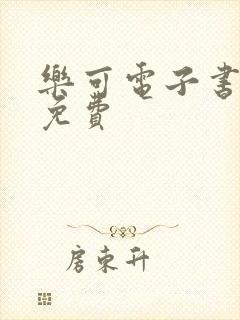 樂可電子書
免費
房東升